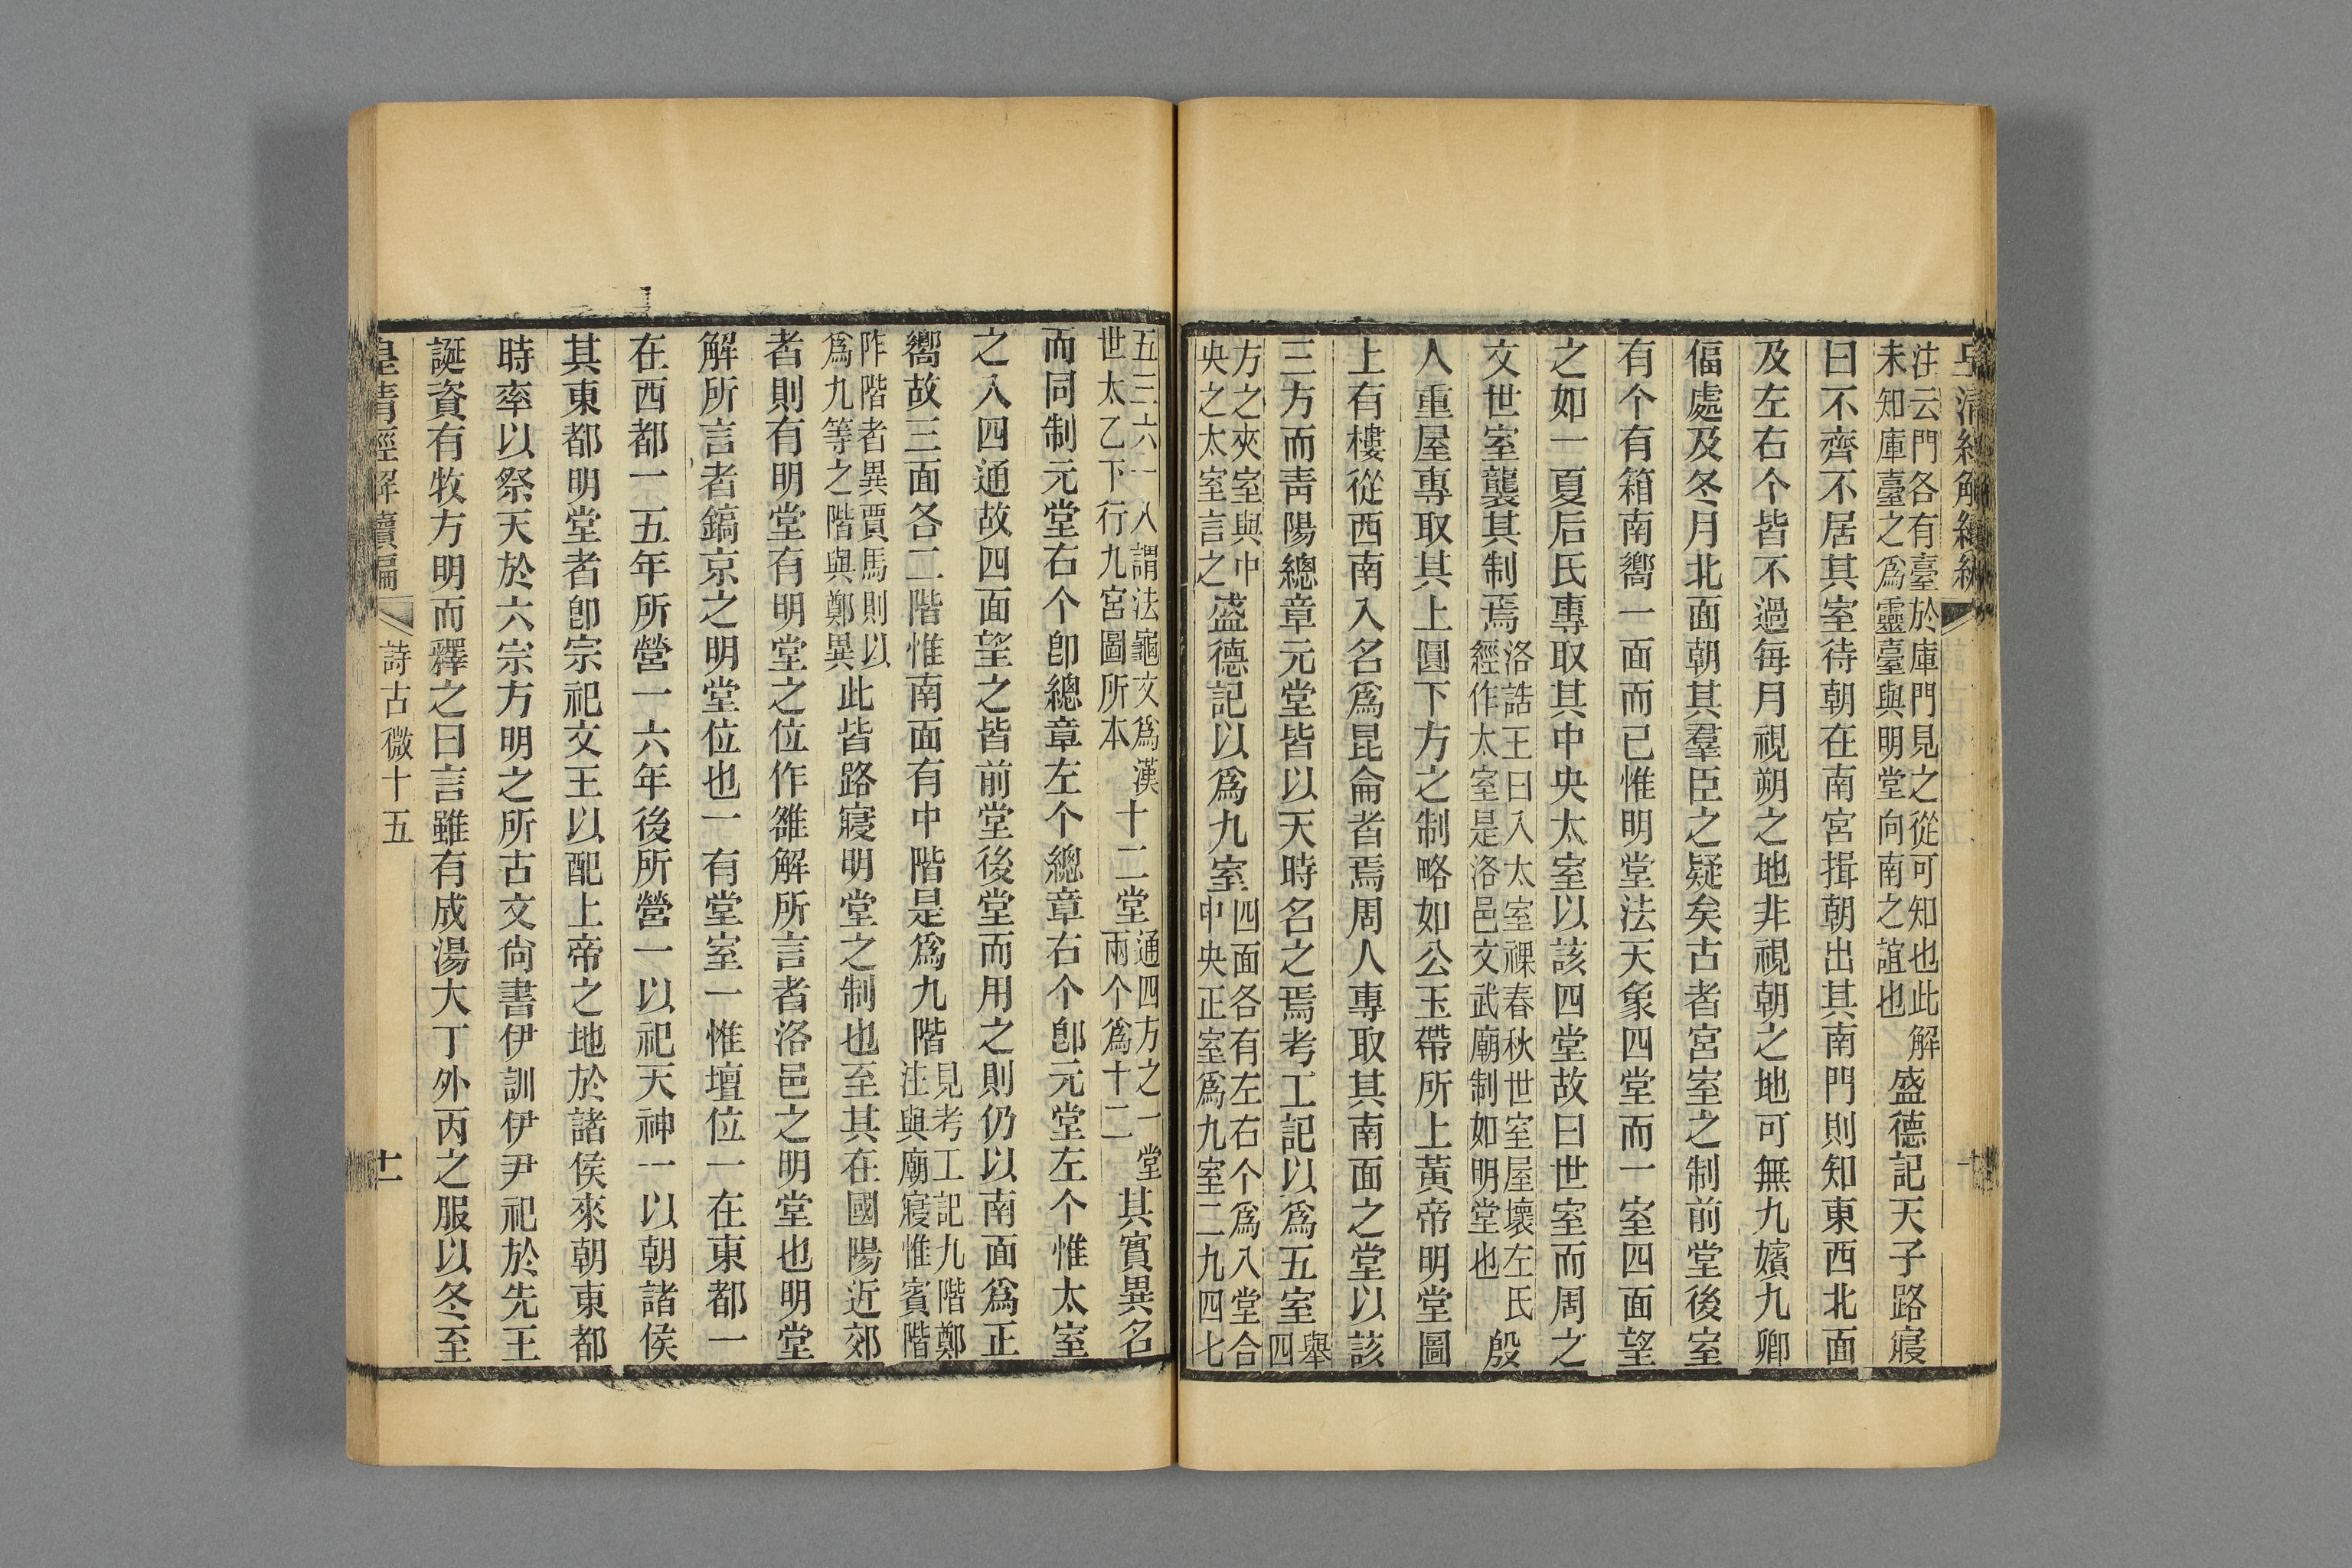 皇清經解續編
注云門各有臺於庫門見之從可知也此解
未知庫臺之爲靈臺與明堂向南之誼也
盛德記天子路寢
曰不齊不居其室待朝在南宮揖朝出其南門則知東西北面
及左右个皆不過每月視朔之地非視朝之地可無九嬪九卿
偪處及冬月北面朝其羣臣之疑矣古者宮室之制前堂後室
有个有箱南嚮一面而已惟明堂法天象四堂而一室四面望
之如一夏后氏專取其中央太室以該四堂故曰世室而周之
文世室襲其制焉
洛誥王曰入太室祼春秋世室屋壞左氏
經作太室是洛邑文武廟制如明堂也
殷
人重屋專取其上圓下方之制略如公玉帶所上黃帝明堂圖
上有樓從西南入名爲昆侖者焉周人專取其南面之堂以該
三方而靑陽總章元堂皆以天時名之焉考工記以爲五室
舉
四
方之夾室與中
央之太室言之
盛德記以爲九室
四面各有左右个爲八堂合
中央正室爲九室二九四七
五三六一八謂法龜文爲漢
世太乙下行九宮圖所本
十二堂
通四方之一堂
兩个爲十二
其實異名
而同制元堂右个卽總章左个總章右个卽元堂左个惟太室
之入四通故四面望之皆前堂後堂而用之則仍以南面爲正
嚮故三面各二階惟南面有中階是爲九階
見考工記九階鄭
注與廟寢惟賓階
阼階者異賈馬則以
爲九等之階與鄭異
此皆路寢明堂之制也至其在國陽近郊
者則有明堂有明堂之位作雒解所言者洛邑之明堂也明堂
解所言者鎬京之明堂位也一有堂室一惟壇位一在東都一
在西都一五年所營一六年後所營一以祀天神一以朝諸侯
其東都明堂者卽宗祀文王以配上帝之地於諸侯來朝東都
時率以祭天於六宗方明之所古文尙書伊訓伊尹祀於先王
誕資有牧方明而釋之曰言雖有成湯大丁外丙之服以冬至
皇清經解續編
詩古微十五
十一